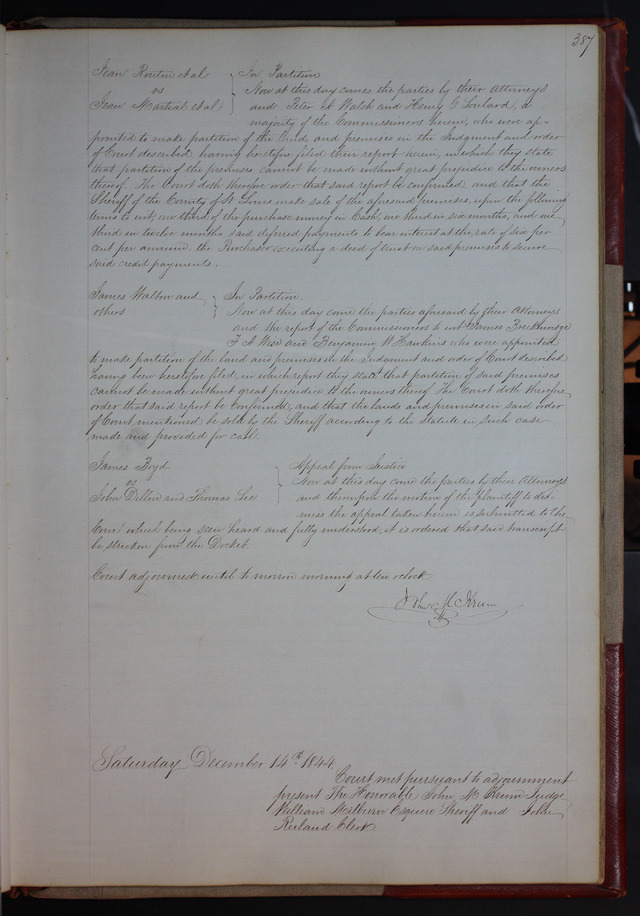 387
Jean Routin et al } In Partition
vs } Now at this day comes the parties by their Attorneys
Jean Martial et al } and Peter A Walsh and Henry G Soulard, a
majority of the Commissioners herein, who were ap-
pointed to make partition of the land and premises in the Judgment and order
of Court described having heretofore filed their report herein, in which they state
that partition of the premises cannot be made without great prejudice to the owners
thereof. The Court doth therefore order that said report be confirmed, and that the
Sheriff of the County of St Louis make sale of the aforesaid premises, upon the following
terms to wit; one third of the purchase money in Cash, one third in six months, and one
third in twelve months said deferred payments to bear interest at the rate of six per
cent per annum, the Purchaser executing a deed of trust on said premises to secure
said credit payments.
James Walton and } In Partition.
others } Now at this day come the parties aforesaid by their Attorneys
and the report of the Commissioners to wit James
and Benjamin W Hawkins who were appointed
to make partition of the land and premises in the Judgment and order of Court described
having been heretofore filed, in which report they state that partition of said premises
cannot be made without great prejudice to the owners thereof. The Court doth therefore
order that said report be Confirmed, and that the lands and premises in said order
of Court mentioned be sold by the Sheriff according to the Statute in Such case
made and provided for cash.
James Boyd } Appeal from Justice
vs } Now at this day come the parties by their Attorneys
John Dillon and Thomas Lee } and thereupon the motion of the plaintiff to dis-
miss the appeal taken herein is submitted to the
Court which being seen heard and fully understood, it is ordered that said transcript
be stricken from the Docket.
Court adjourned until to morrow morning at ten oclock
John M Krum
Saturday December 14th 1844
Court met pursuant to adjournment
present The Honorable John M Krum Judge
William Milburn Esquire Sheriff and John
Ruland Clerk